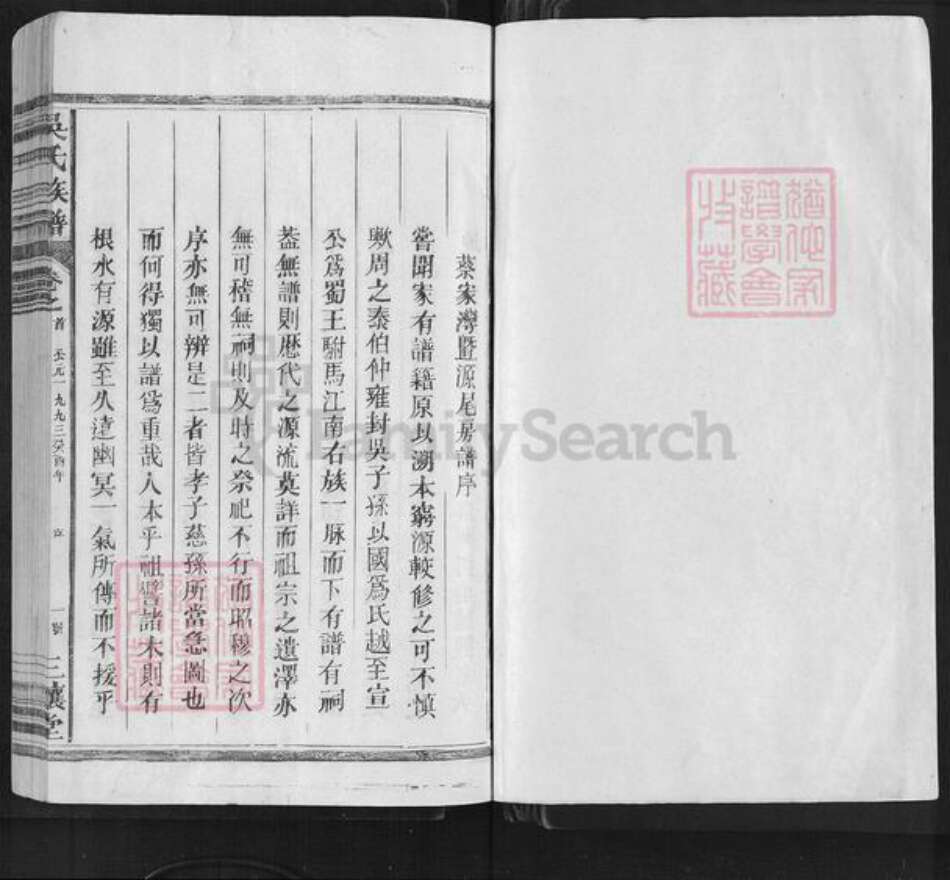 蔡家灣暨源尾房譜序
嘗聞家有譜籍原以溯本窮源較修之可不慎
歟周之泰伯仲雍封吳子孫以國爲氏越至宣
公爲蜀王駙馬江南右族一脉而下有譜有祠
葢無譜則歷代之源流莫詳而祖宗之遺澤亦
無可稽無祠則及時之祭祀不行而昭穆之次
序亦無可辨是二者皆孝子慈孫所當急圖也
而何得獨以譜爲重哉人本乎祖譬諸木則有
根水有源雖至久遠幽冥一氣所傳而不援乎
吳氏族譜
卷之首
公元一九九三癸酉年
三讓堂
猶他家譜學會特藏
FamilySearch